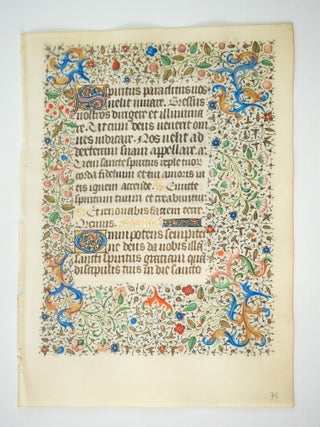 Spiritus paraclitus nos
velit iuuare. Gressus
nostros dirigere et illumina
re. Iterum deus uenient om
nes iudicare. Nos uelit ad
dexteram suam appellare. a.
Veni sancte spiritus reple tuor
corda fidelium et tui amoris in
eis ignem accende. Emitte
spiritum tuum et creabuntur
Et renouabis faciem terre
Oremus.
Omnipotens sempiter
ne deus da nobis illa
sancti spiritus gratiam qua
discipulis tuis in die sancto
75